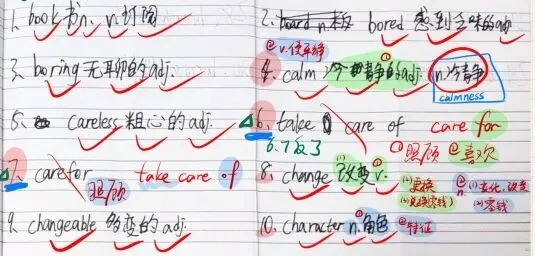 1. book 书n. v. 订阅
2. board n. 板 bored 感到乏味的adj
3. boring 无聊的adj.
@ v. 使平静
4. calm 冷静的adj. n. 冷静
calmness
5. careless 粗心的adj.
6. take care of care for
6.7反了 ① 照顾 ② 喜欢
7. care for take care of
照顾
8. change 改变 v.
(1) 更换
n (1) 变化, 改变
(2) 零钱
9. changeable 多变的 adj.
10. character n. 角色 特征